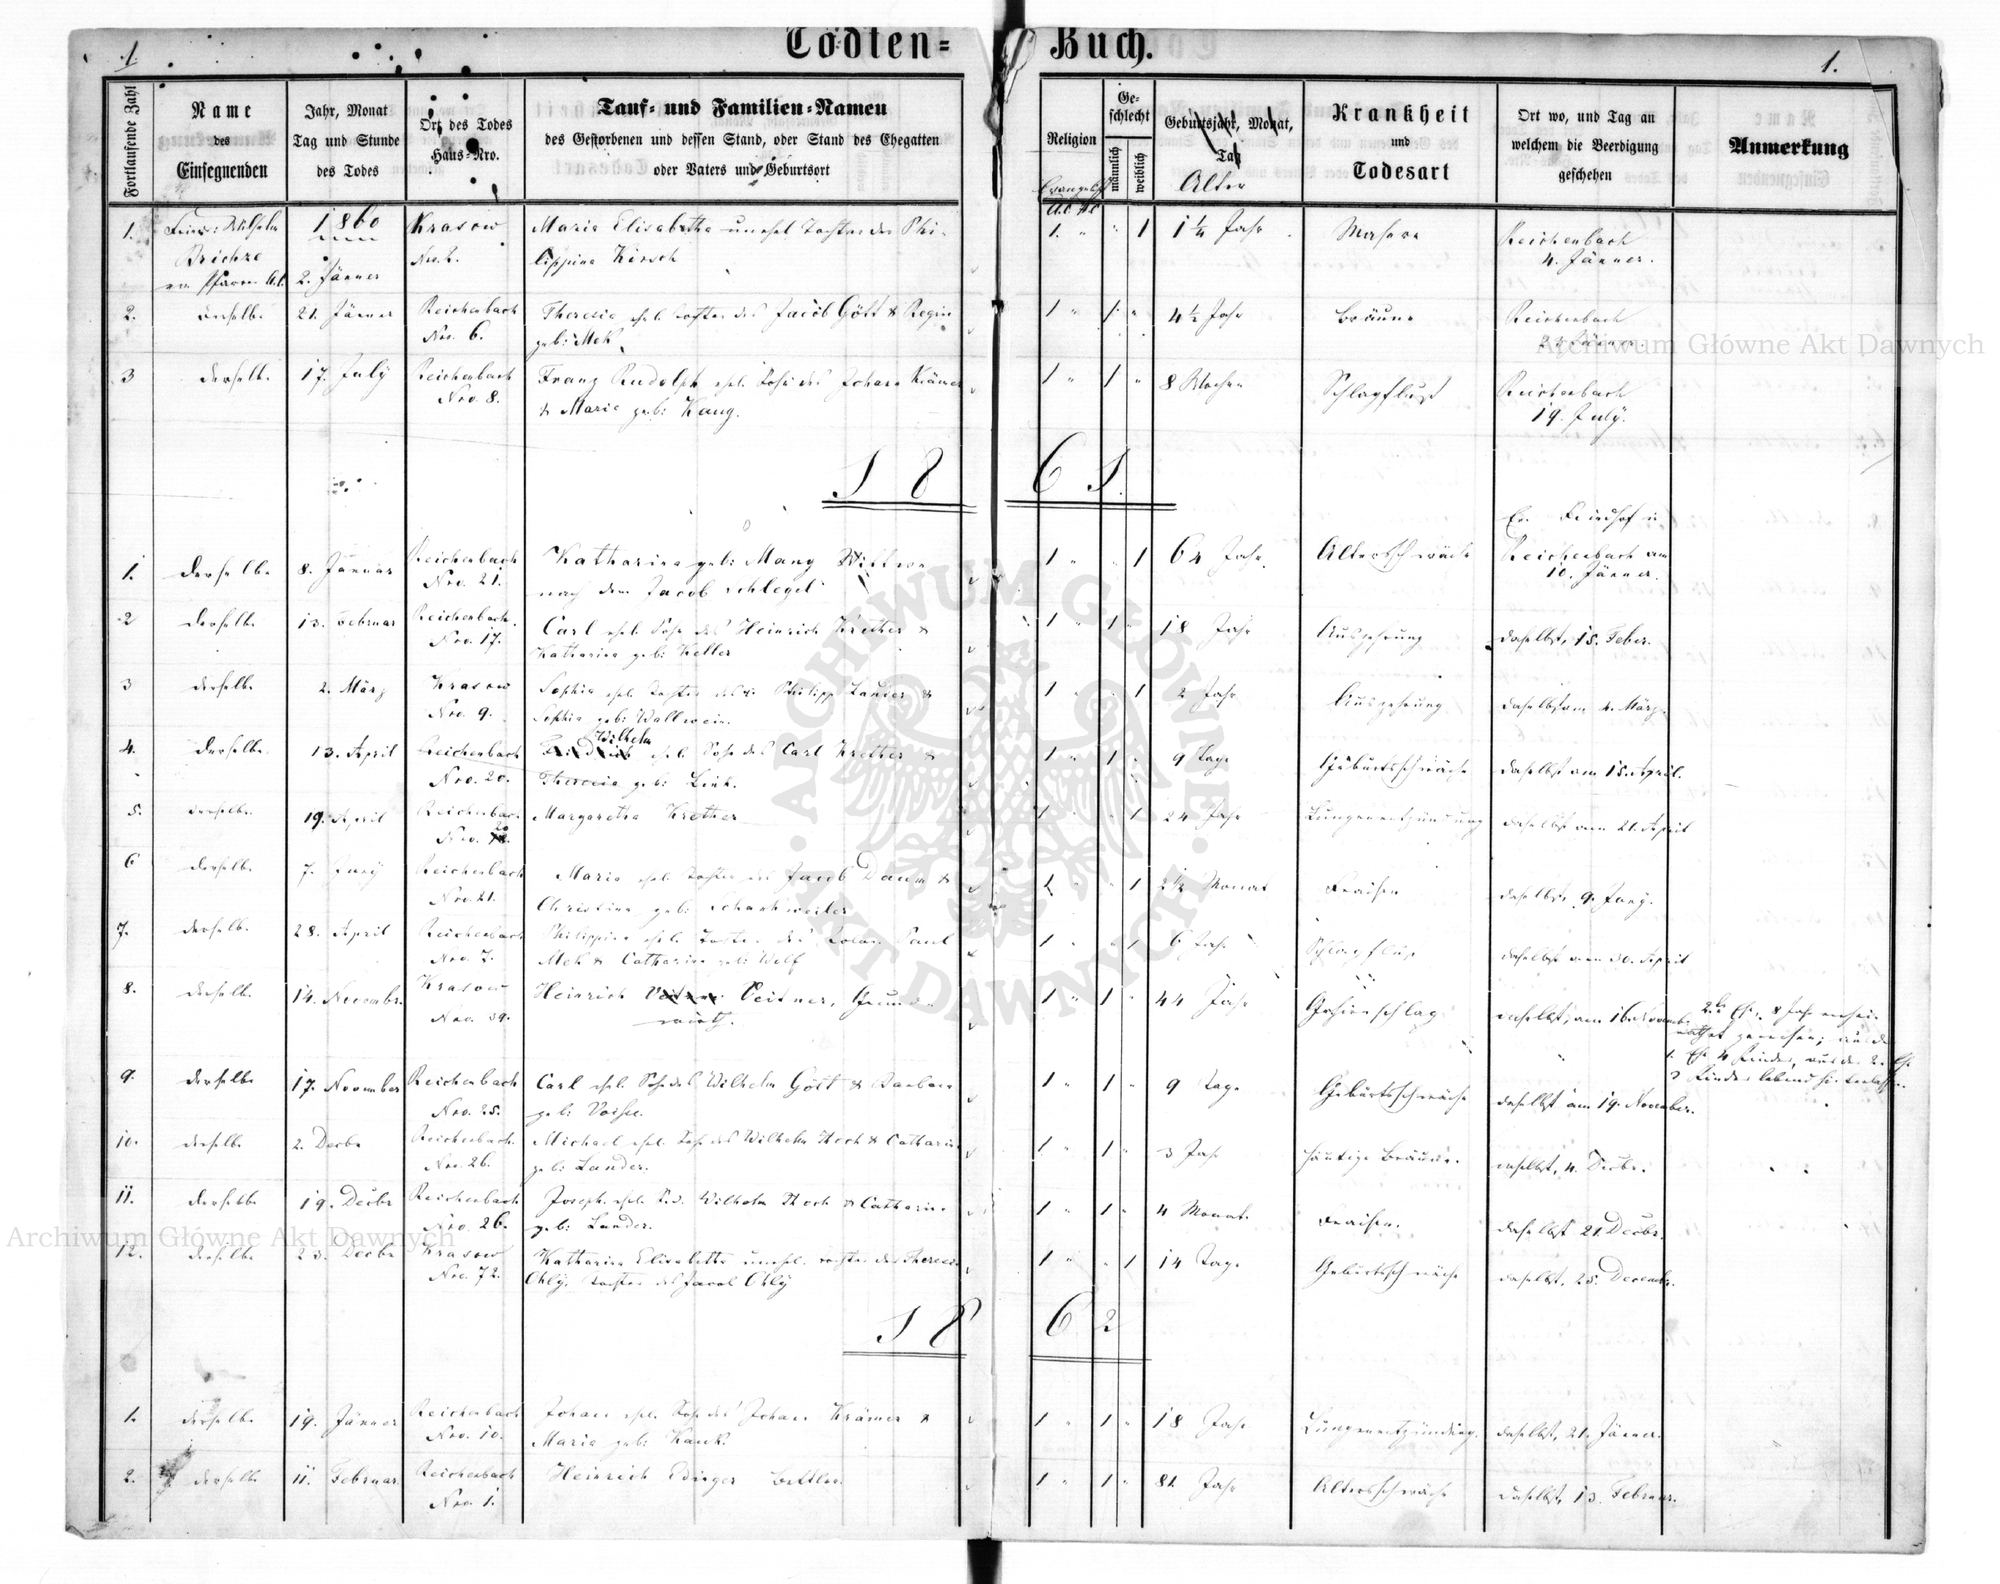 1.
Todten-
Buch.
1.
Fortlaufende Zahl
Name
des
Einsegnenden
Jahr, Monat
Tag und Stunde
des Todes
Ort des Todes
Haus-Nro.
Tauf- und Familien-Namen
des Gestorbenen und dessen Stand, oder Stand des Ehegatten
oder Vaters und Geburtsort
Religion
Ge-
schlecht
männlich
weiblich
Geburtsjahr, Monat,
Tag
Alter
Krankheit
und
Todesart
Ort wo, und Tag an
welchem die Beerdigung
geschehen
Anmerkung
1. 1860 Krasow Maria Elisabetha unehel. Tochter der Phi-
Nro. 2. lippina Kirsch
2. Jänner
1. 1 1 1/4 Jahr Masern Reichenbach
4. Jänner.
2. derselbe 21. Jänner Reichenbach Theresia ehel. Tochter des Jacob Gött & Regin
Nro. 6. geb:
1 1 4 1/2 Jahr Bräune Reichenbach
Jänner.
3 derselbe 17. July Reichenbach Franz Rudolph ehel. Sohn des Johann Krämer
Nro. 8. & Maria geb: Kaug.
1 1 8 Wochen Schlagfluß Reichenbach
19. July.
1861.
1. derselbe 8. Januar Reichenbach Katharina geb: Mang Wittwe
Nro. 21. nach dem Jacob Schlegel
1 1 64 Jahr. Altersschwäche Friedhof
Reichenbach am
10. Jänner.
2 derselbe 13. Februar Reichenbach. Carl ehel. Sohn des Heinrich Krether &
Nro. 17. Katharina geb: Keller
1 1 18 Jahr Auszehrung daselbst, 15. Feber.
3 derselbe 2. März Krasow Sophia ehel. Tochter des Philipp Lander &
Nro. 9. Sophia geb: Wallrwein.
1 1 2 Jahr Auszehrung daselbst am 4. März
4. derselbe 13. April Reichenbach Wilhelm ehel. Sohn des Carl Krether &
Nro. 20. Theresia geb: Link.
1 1 9 Tage Geburtsschwäche daselbst am 15. April.
5. derselbe 19. April Reichenbach Margaretha Krether
Nro. 20
1 1 24 Jahr Lungenentzündung daselbst am 21. April
6 derselbe 7. Juny Reichenbach Maria ehel. Tochter des Jacob Daum &
Nro. 21. Christina geb: Schankweiler
1 1 2 1/2 Monat Fraisen daselbst 9. Juny.
7. derselbe 28. April Reichenbach Philippina ehel. Tochter des Paul
Nro. 7. & Catharina geb: Wolf
1 1 6 Jahr Schlagfluß daselbst am 30. April
8. derselbe 14. November. Krasow Heinrich Peitner, Grund-
Nro. 39. wirth.
1 1 44 Jahr Gehirnschlag daselbst, am 16. November
9. derselbe 17. November Reichenbach Carl ehel. Sohn des Wilhelm Gött & Barbara
Nro. 25. geb:
1 1 9 Tage Geburtsschwäche daselbst am 19. November.
10. derselbe 2. Decbr Reichenbach. Michael ehel. Sohn des Wilhelm Koch & Catharin
Nro. 26. geb: Lander.
1 1 3 Jahr häutige Bräune. daselbst, 4. Decbr.
11. derselbe 19. Decbr Reichenbach Joseph. ehel. S. d. Wilhelm Koch & Catharin
Nro. 26. geb: Lander.
1 1 4 Monat. Fraisen. daselbst 21. Decbr.
12. derselbe 23. Decbr Krasow Katharina Elisabetha unehel. Tochter der Theresia
Nro. 72. Ohly. Tochter des Jacob Ohly
1 1 14 Tage Geburtsschwäche daselbst, 25. Decembr.
1862
1. derselbe 19. Jänner Reichenbach Johann ehel. Sohn des Johann Krämer &
Nro. 10. Maria geb: Kauk.
1 1 18 Jahr Lungenentzündung. daselbst, 21. Jänner.
2. derselbe 11. Februar. Reichenbach Heinrich Edinger Bettler.
Nro. 1.
1 1 81. Jahr Altersschwäche daselbst, 13. Februar.
Archiwum Główne Akt Dawnych
Archiwum Główne Akt Dawnych
ARCHIWUM GŁÓWNE
AKT DAWNYCH